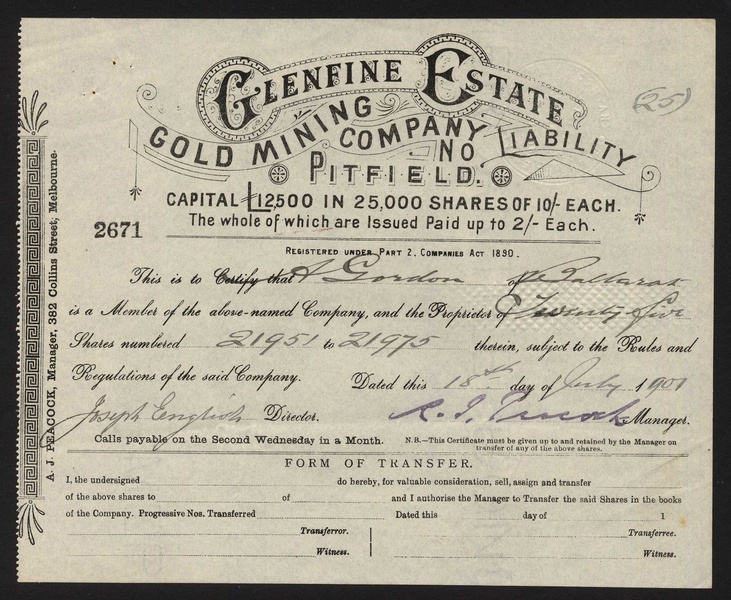 GLENFINE ESTATE
(25)
GOLD MINING COMPANY NO LIABILITY
PITFIELD.
CAPITAL £12,500 IN 25,000 SHARES OF 10/- EACH.
2671
The whole of which are Issued Paid up to 2/- Each.
REGISTERED UNDER PART 2, COMPANIES ACT 1890.
This is to Certify that A Gordon of Ballarat
is a Member of the above-named Company, and the Proprietor of Twenty five
Shares numbered 21951 to 21975 therein, subject to the Rules and
Regulations of the said Company. Dated this 18th day of July 1901
Joseph English Director. A. J. Peacock Manager.
Calls payable on the Second Wednesday in a Month.
N.B.—This Certificate must be given up to and retained by the Manager on
transfer of any of the above shares.
FORM OF TRANSFER.
I, the undersigned do hereby, for valuable consideration, sell, assign and transfer
of the above shares to of and I authorise the Manager to Transfer the said Shares in the books
of the Company. Progressive Nos. Transferred Dated this day of 1
Transferror. Transferree.
Witness. Witness.
A. J. PEACOCK, Manager, 382 Collins Street, Melbourne.